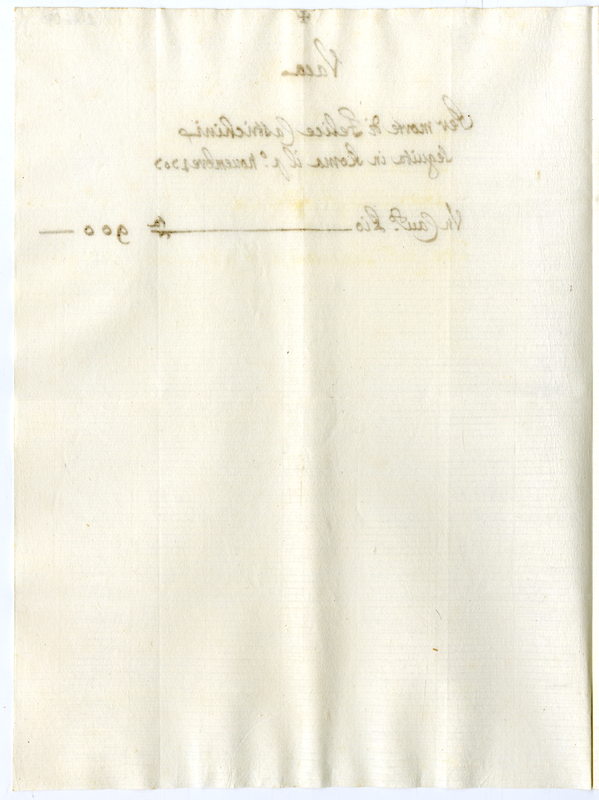 Vaca
Per morte di Felice Castrichini
Seguita in Roma il p.º novembre 1703
Un Cav.to Pio 900